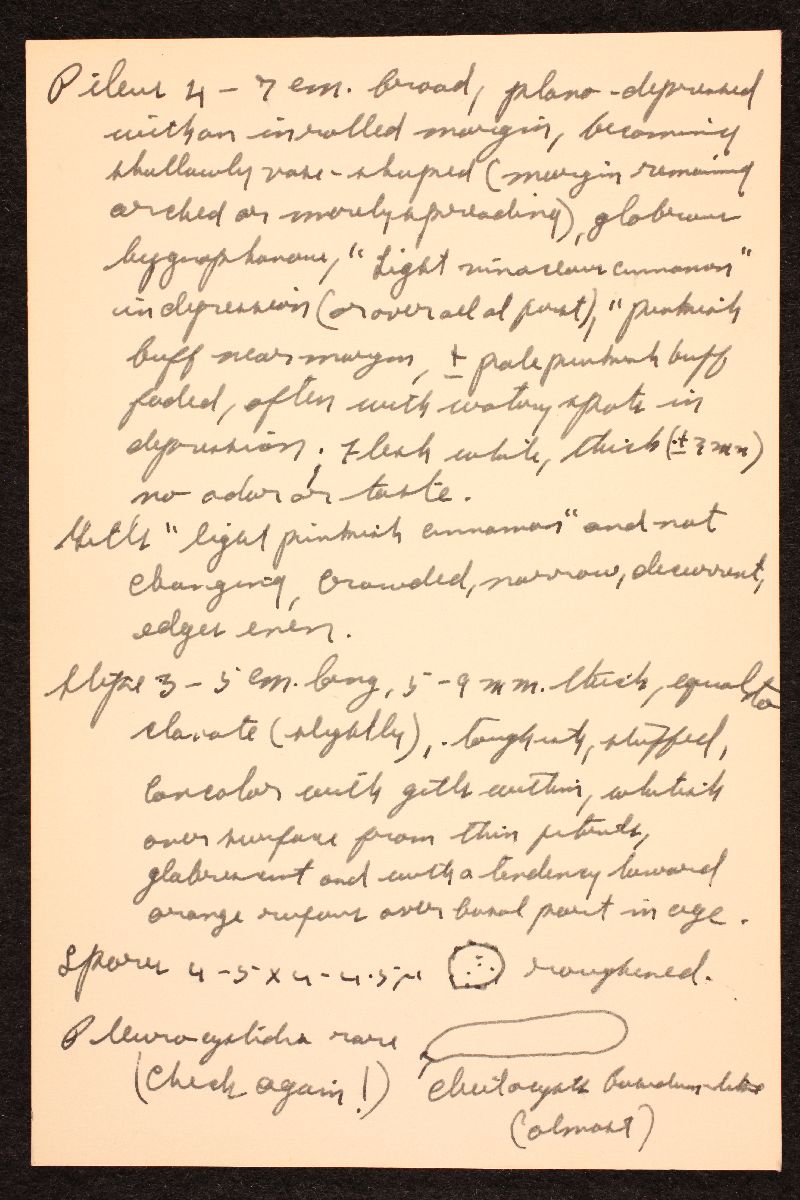 Pileus 4 – 7 cm. broad, plano-depressed
with an inrolled margin, becoming
shallowly vase-shaped (margin remaining
arched or merely spreading), glabrous
hygrophanous, "light vinaceous cinnamon"
in depression (or over all at first), "pinkish
buff near margin, ± pale pinkish buff
faded, often with watery spots in
depression; flesh white, thick (± 3 mm)
no odor or taste.
Gills "light pinkish cinnamon" and not
changing, crowded, narrow, decurrent,
edges even.
Stipe 3 – 5 cm. long, 5 – 9 mm. thick, equal to
clavate (slightly), toughish, stuffed,
concolor with gills within, whitish
over surface from thin fibrils,
glabrescent and with a tendency toward
orange rufous over basal part in age.
Spores 4 – 5 x 4 – 4.5 µ roughened.
Pleurocystidia rare
(Check again!) cheilocysts basidium-like
(almost)